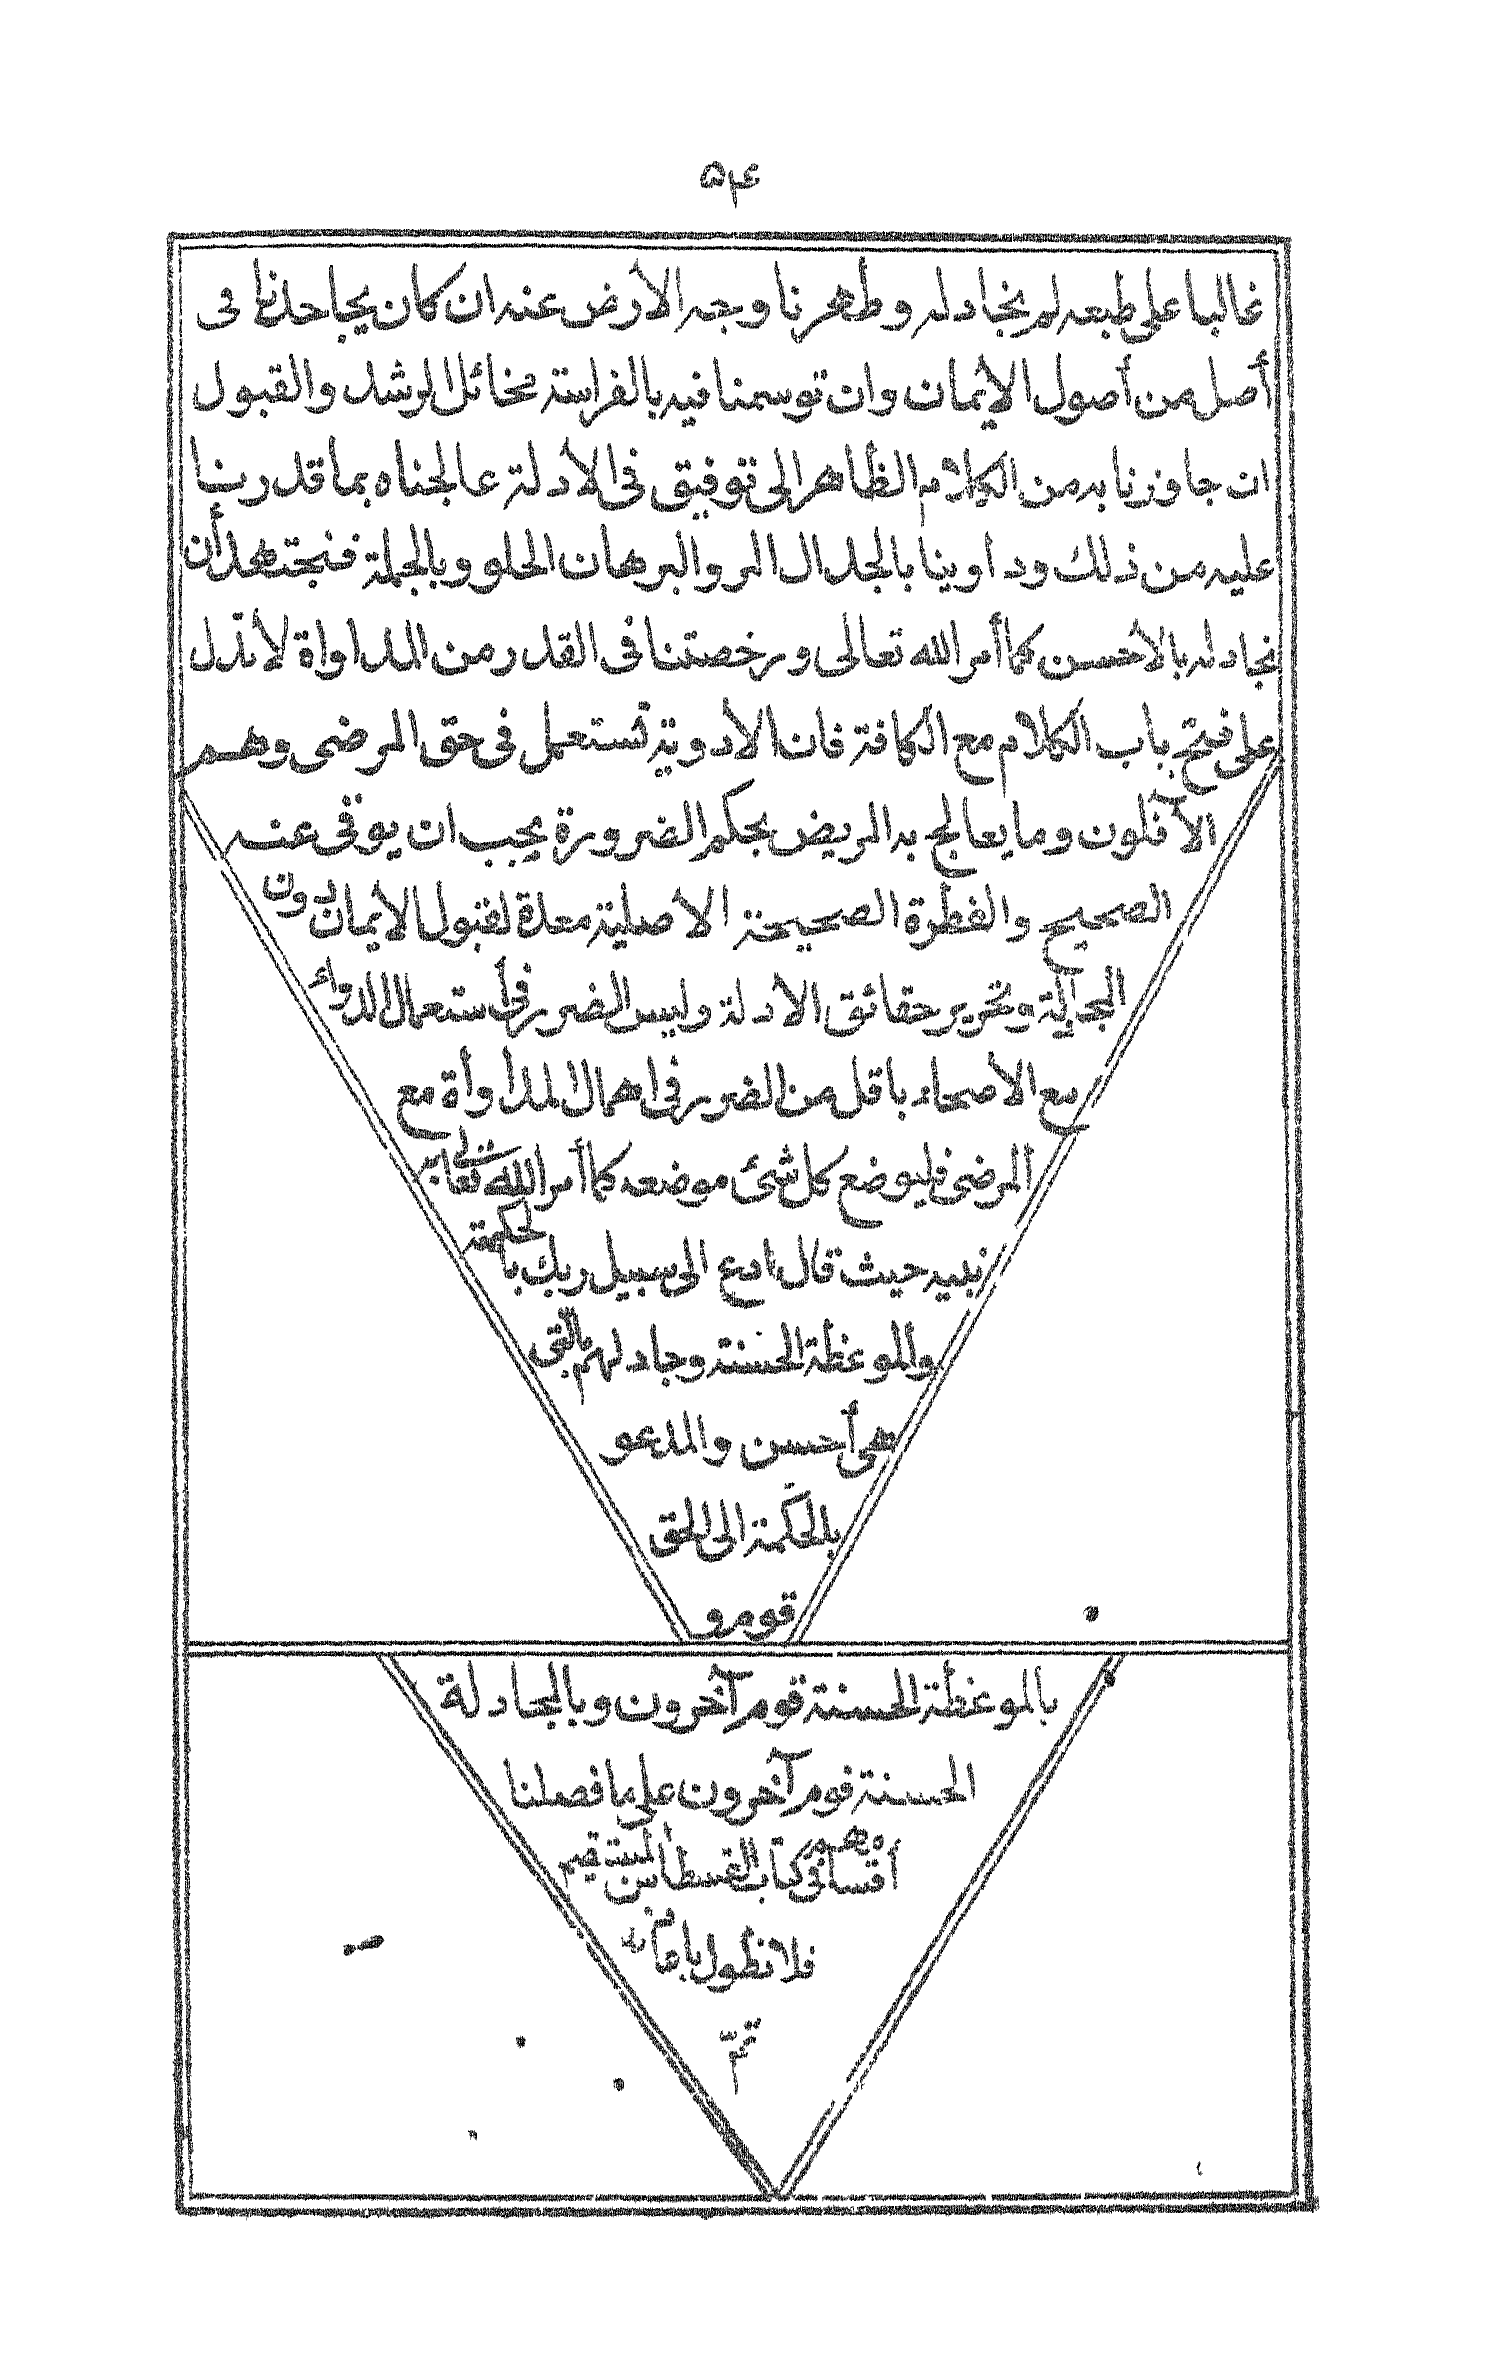 ۵۴
غالبا على طبعه لم نجادله وطهرنا وجه الأرض عنه ان كان يجاحدنا فى
أصل من أصول الإيمان وان توسمنا فيه بالفراسة مخائل الرشد والقبول
ان جاوزنا به من الكلام الظاهر الى توفيق فى الأدلة عالجناه بما قدرنا
عليه من ذلك وداوينا بالجدال المر والبرهان الحلو وبالجملة فنجتهد أن
نجادله بالأحسن كما أمر الله تعالى ورخصتنا فى القدر من المداواة لا تدل
على فتح باب الكلام مع الكافة فان الأدوية تستعمل فى حق المرضى وهم
الأقلون وما يعالج به المريض بحكم الضرورة يجب ان يوقى عنه
الصحيح والفطرة الصحيحة الأصلية معدة لقبول الإيمان دون
المجادلة وتحرير حقائق الأدلة وليس الضرر فى استعمال الدواء
مع الأصحاء باقل من الضرر فى اهمال المداواة مع
المرضى فليوضع كل شئ موضعه كما أمر الله تعالى به
نبيه حيث قال ادع الى سبيل ربك بالحكمة
والموعظة الحسنة وجادلهم بالتى
هى أحسن والمدعو
بالحكمة الى الحق
قوم و
بالموعظة الحسنة قوم آخرون وبالمجادلة
الحسنة قوم آخرون على ما فصلنا
أقسامهم فى كتاب القسطاس المستقيم
فلا نطول باعادته
تم